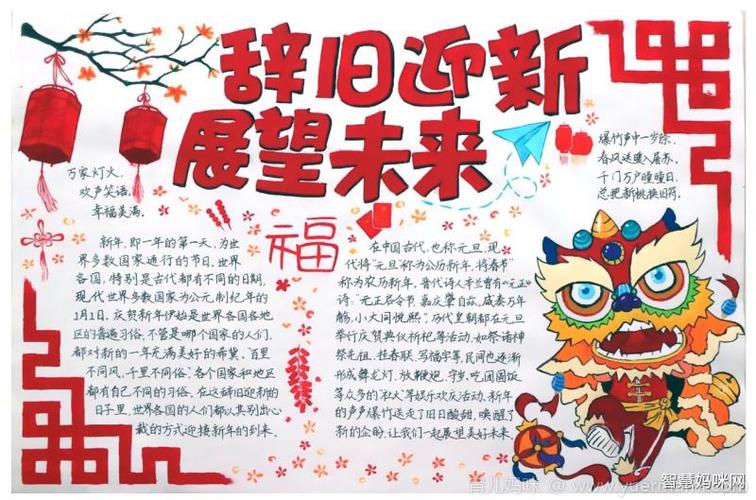 辞旧迎新
展望未来
万家灯火,
欢声笑语,
幸福美满。
爆竹声中一岁除,
春风送暖入屠苏。
千门万户曈曈日,
总把新桃换旧符。
福
新年,即一年的第一天,为世
界多数国家通行的节日。世界
各国,特别是古代都有不同的日期,
现代世界多数国家为公元制纪年的
1月1日。庆贺新年伊始是世界各国各地
区的普遍习俗,不管是哪个国家的人们,
都对新的一年充满美好的希冀。"百里
不同风,千里不同俗",各个国家和地区
都有自己不同的习俗。在这辞旧迎新的
日子里,世界各国的人们都以其别出心
裁的方式迎接新年的到来。
在中国古代,也称元旦,现
代将"元旦"称为公历新年,将春节
称为农历新年,晋代诗人辛兰曾有"元正"
诗:"元正启令节,嘉庆肇自兹,咸奏万年
觞,小大同悦熙";历代皇朝都在元旦
举行庆贺典仪祈祀等活动,如祭诸神
祭先祖、挂春联、写福字等,民间也逐渐
形成舞龙灯、放鞭炮、守岁、吃团圆饭
等众多的"社火"等娱乐欢庆活动,新年
的声声爆竹送走了旧日酸甜,唤醒了
新的企盼,让我们一起展望美好未来
智慧妈咪网